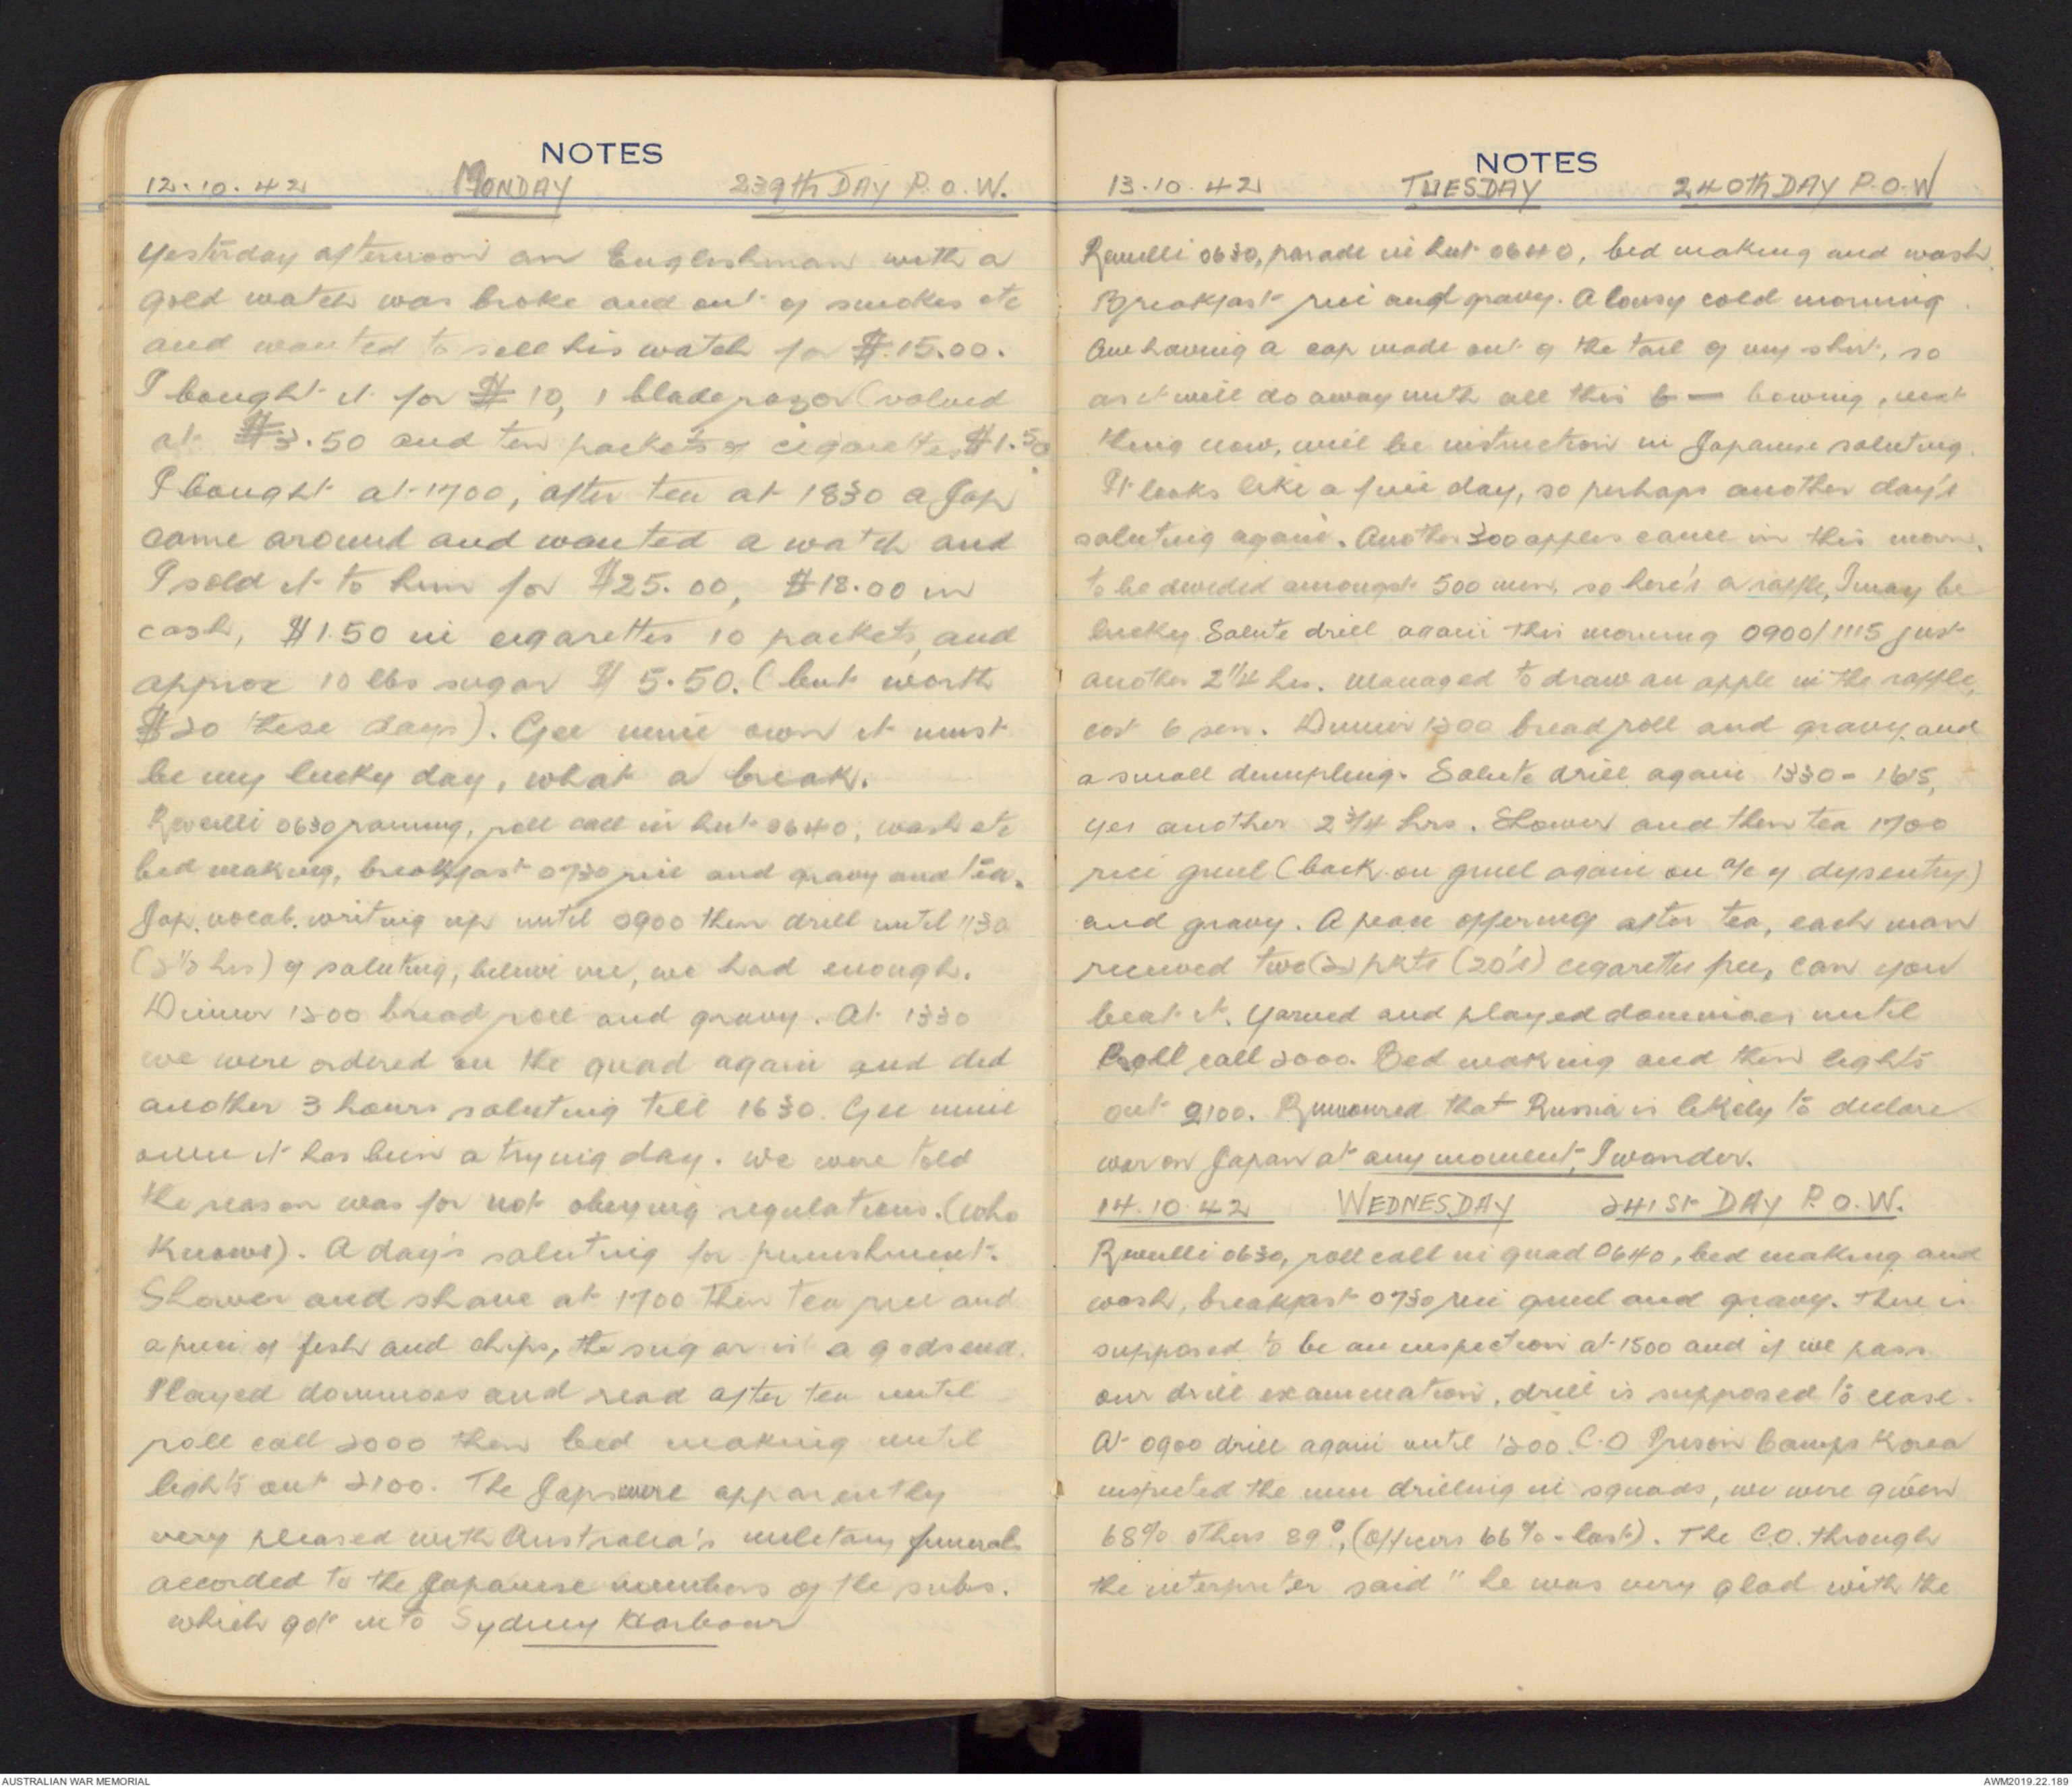 NOTES
12.10.42 MONDAY 239th DAY P.O.W.
Yesterday afternoon an Englishman with a
gold watch was broke and out of smokes etc
and wanted to sell his watch for $15.00.
I bought it for $10, 1 blade razor (valued
at $3.50 and ten packets of cigarettes $1.50
I bought at 1700, after tea at 1830 a Jap
came around and wanted a watch and
I sold it to him for $25.00, $18.00 in
cash, $1.50 in cigarettes 10 packets, and
approx 10 lbs sugar $5.50. (but worth
$20 these days). Gee mine own it must
be my lucky day, what a break.
Reveilli 0630, roll call in hut 0640, wash etc
bed making, breakfast 0730 rice and gravy and tea.
Jap. vocab. writing up until 0900 then drill until 1130
(2½ hrs) of saluting, believe me, we had enough.
Dinner 1200 bread roll and gravy. At 1330
we were ordered on the quad again and did
another 3 hours saluting till 1630. Gee mine
own it has been a trying day. We were told
the reason was for not obeying regulations. (who
knows). A day's saluting for punishment.
Shower and shave at 1700 then tea rice and
a piece of fish and chips, the sugar is a godsend.
Played dominoes and read after tea until
roll call 2000 then bed making until
lights out 2100. The Japs were apparently
very pleased with Australia's military funerals
accorded to the Japanese members of the subs.
which got into Sydney Harbour
NOTES
13.10.42 TUESDAY 240th DAY P.O.W
Reveilli 0630, parade in hut 0640, bed making and wash.
Breakfast rice and gravy. A lousy cold morning.
Am having a cap made out of the tail of my shirt, so
as it will do away with all this b— bowing, next
thing now, will be instruction in Japanese saluting.
It looks like a fine day, so perhaps another day's
saluting again. Another 200 apples came in this morn.
to be devided amongst 500 men, so here's a raffle, I may be
lucky. Salute drill again this morning 0900/1115 just
another 2¼ hrs. Managed to draw an apple in the raffle,
cost 6 sen. Dinner 1200 bread roll and gravy and
a small dumpling. Salute drill again 1330 - 1615,
yes another 2¾ hrs. Shower and then tea 1700
rice gruel (back on gruel again on a/c of dysentry)
and gravy. A peace offering after tea, each man
received two (2) pkts (20's) cigarettes free, can you
beat it. Yarned and played dominoes until
Roll call 2000. Bed making and then lights
out 2100. Rumoured that Russia is likely to declare
war on Japan at any moment, I wonder.
14.10.42 WEDNESDAY 241st DAY P.O.W.
Reveilli 0630, roll call in quad 0640, bed making and
wash, breakfast 0730 rice gruel and gravy. There is
supposed to be an inspection at 1500 and if we pass
our drill examination, drill is supposed to cease.
At 0900 drill again until 1200. C.O Prison Camps Korea
inspected the men drilling in squads, we were given
68% others 89%, (Officers 66% - last). The C.O. through
the interpreter said " he was very glad with the
AUSTRALIAN WAR MEMORIAL
AWM2019.22.189